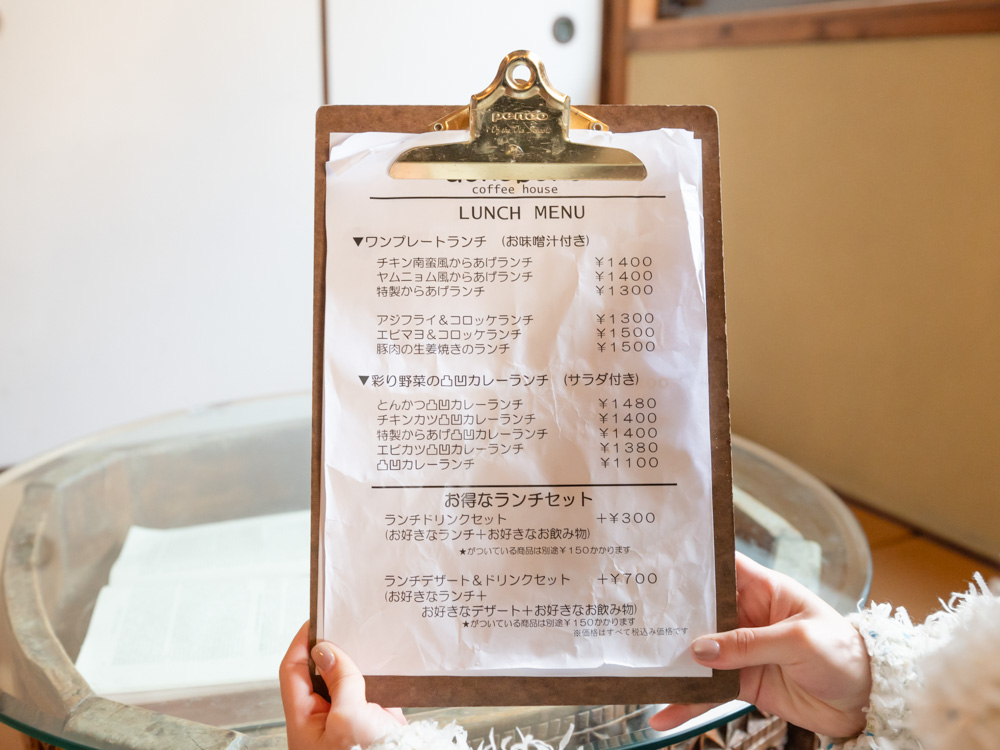 penco
coffee house
LUNCH MENU
▼ワンプレートランチ (お味噌汁付き)
チキン南蛮風からあげランチ ¥1400
ヤムニョム風からあげランチ ¥1400
特製からあげランチ ¥1300
アジフライ&コロッケランチ ¥1300
エビマヨ&コロッケランチ ¥1500
豚肉の生姜焼きのランチ ¥1500
▼彩り野菜の凸凹カレーランチ (サラダ付き)
とんかつ凸凹カレーランチ ¥1480
チキンカツ凸凹カレーランチ ¥1400
特製からあげ凸凹カレーランチ ¥1400
エビカツ凸凹カレーランチ ¥1380
凸凹カレーランチ ¥1100
お得なランチセット
ランチドリンクセット +¥300
(お好きなランチ+お好きなお飲み物)
★がついている商品は別途¥150かかります
ランチデザート&ドリンクセット +¥700
(お好きなランチ+
お好きなデザート+お好きなお飲み物)
★がついている商品は別途¥150かかります
※価格はすべて税込み価格です